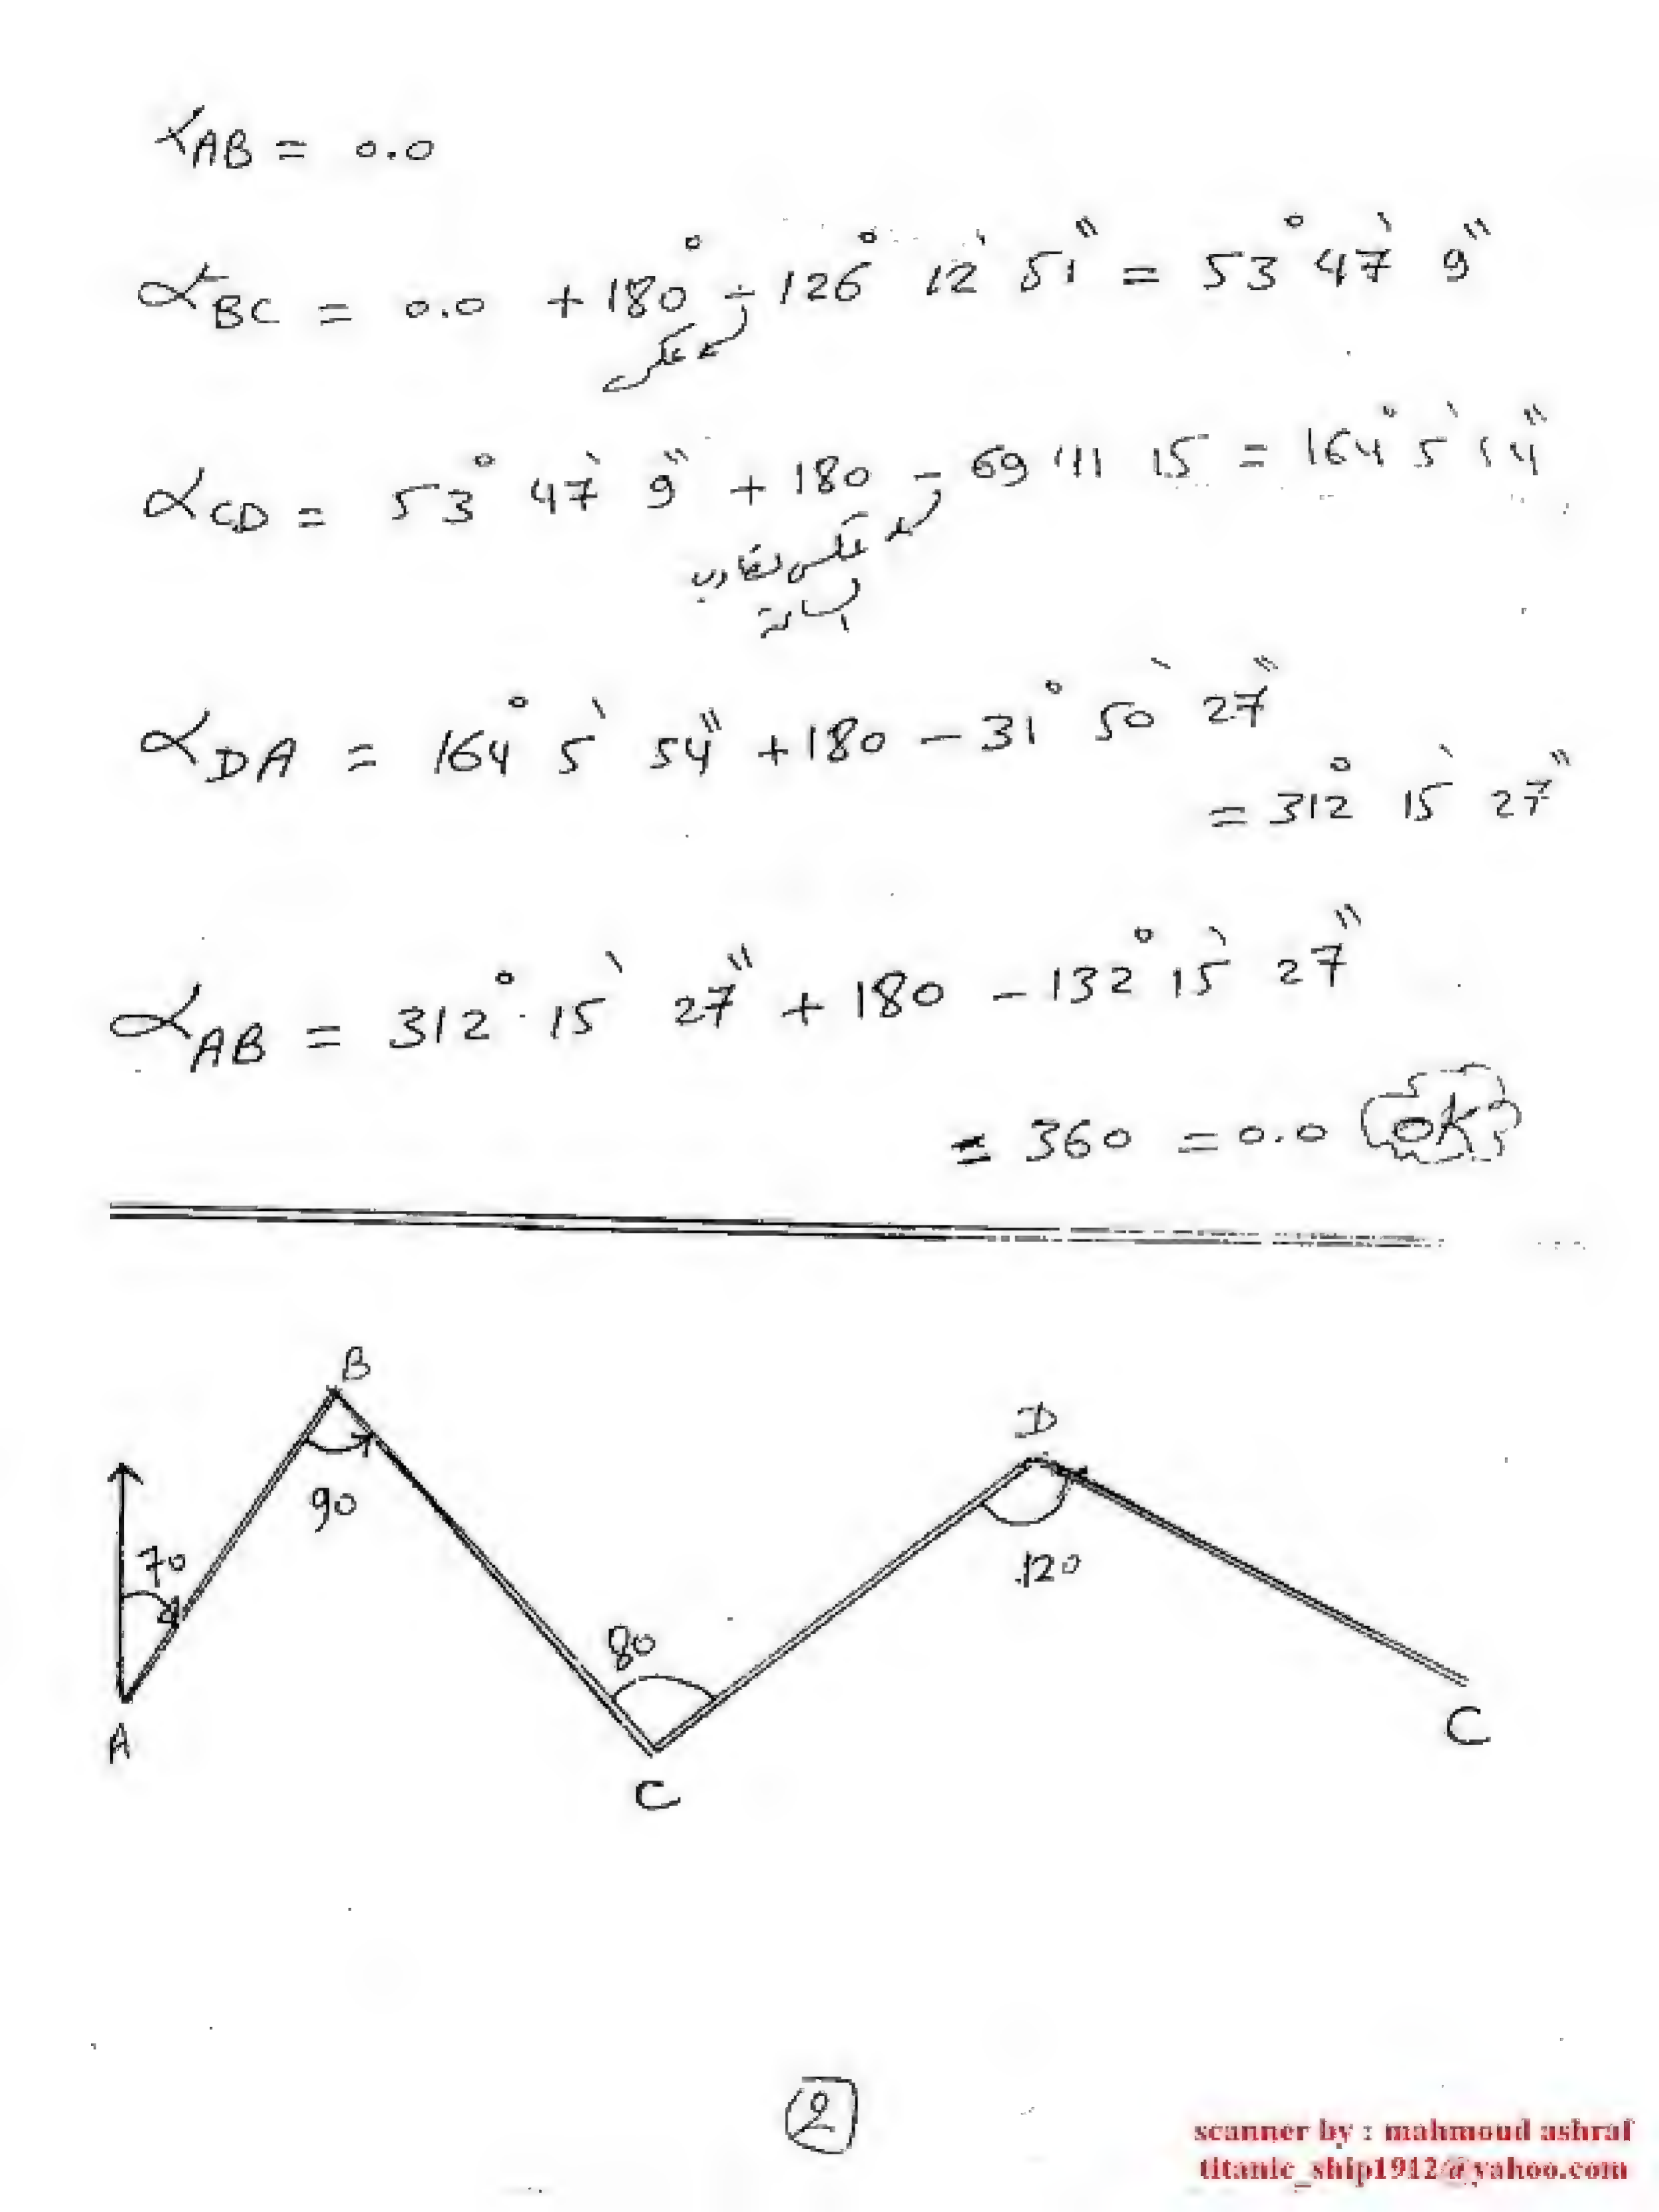 αAB = 0.0
αBC = 0.0 + 180° - 126° 12' 51" = 53° 47' 9"
عكس
αCD = 53° 47' 9" + 180 - 69 41 15 = 164° 5' 54"
عكس عقارب
الساعة
αDA = 164° 5' 54" + 180 - 31° 50' 27"
= 312° 15' 27"
αAB = 312° 15' 27" + 180 - 132° 15' 27"
= 360 = 0.0 OK
B
D
90
70
120
80
A
C
C
2
scanner by : mahmoud ashraf
titanic_ship1912@yahoo.com